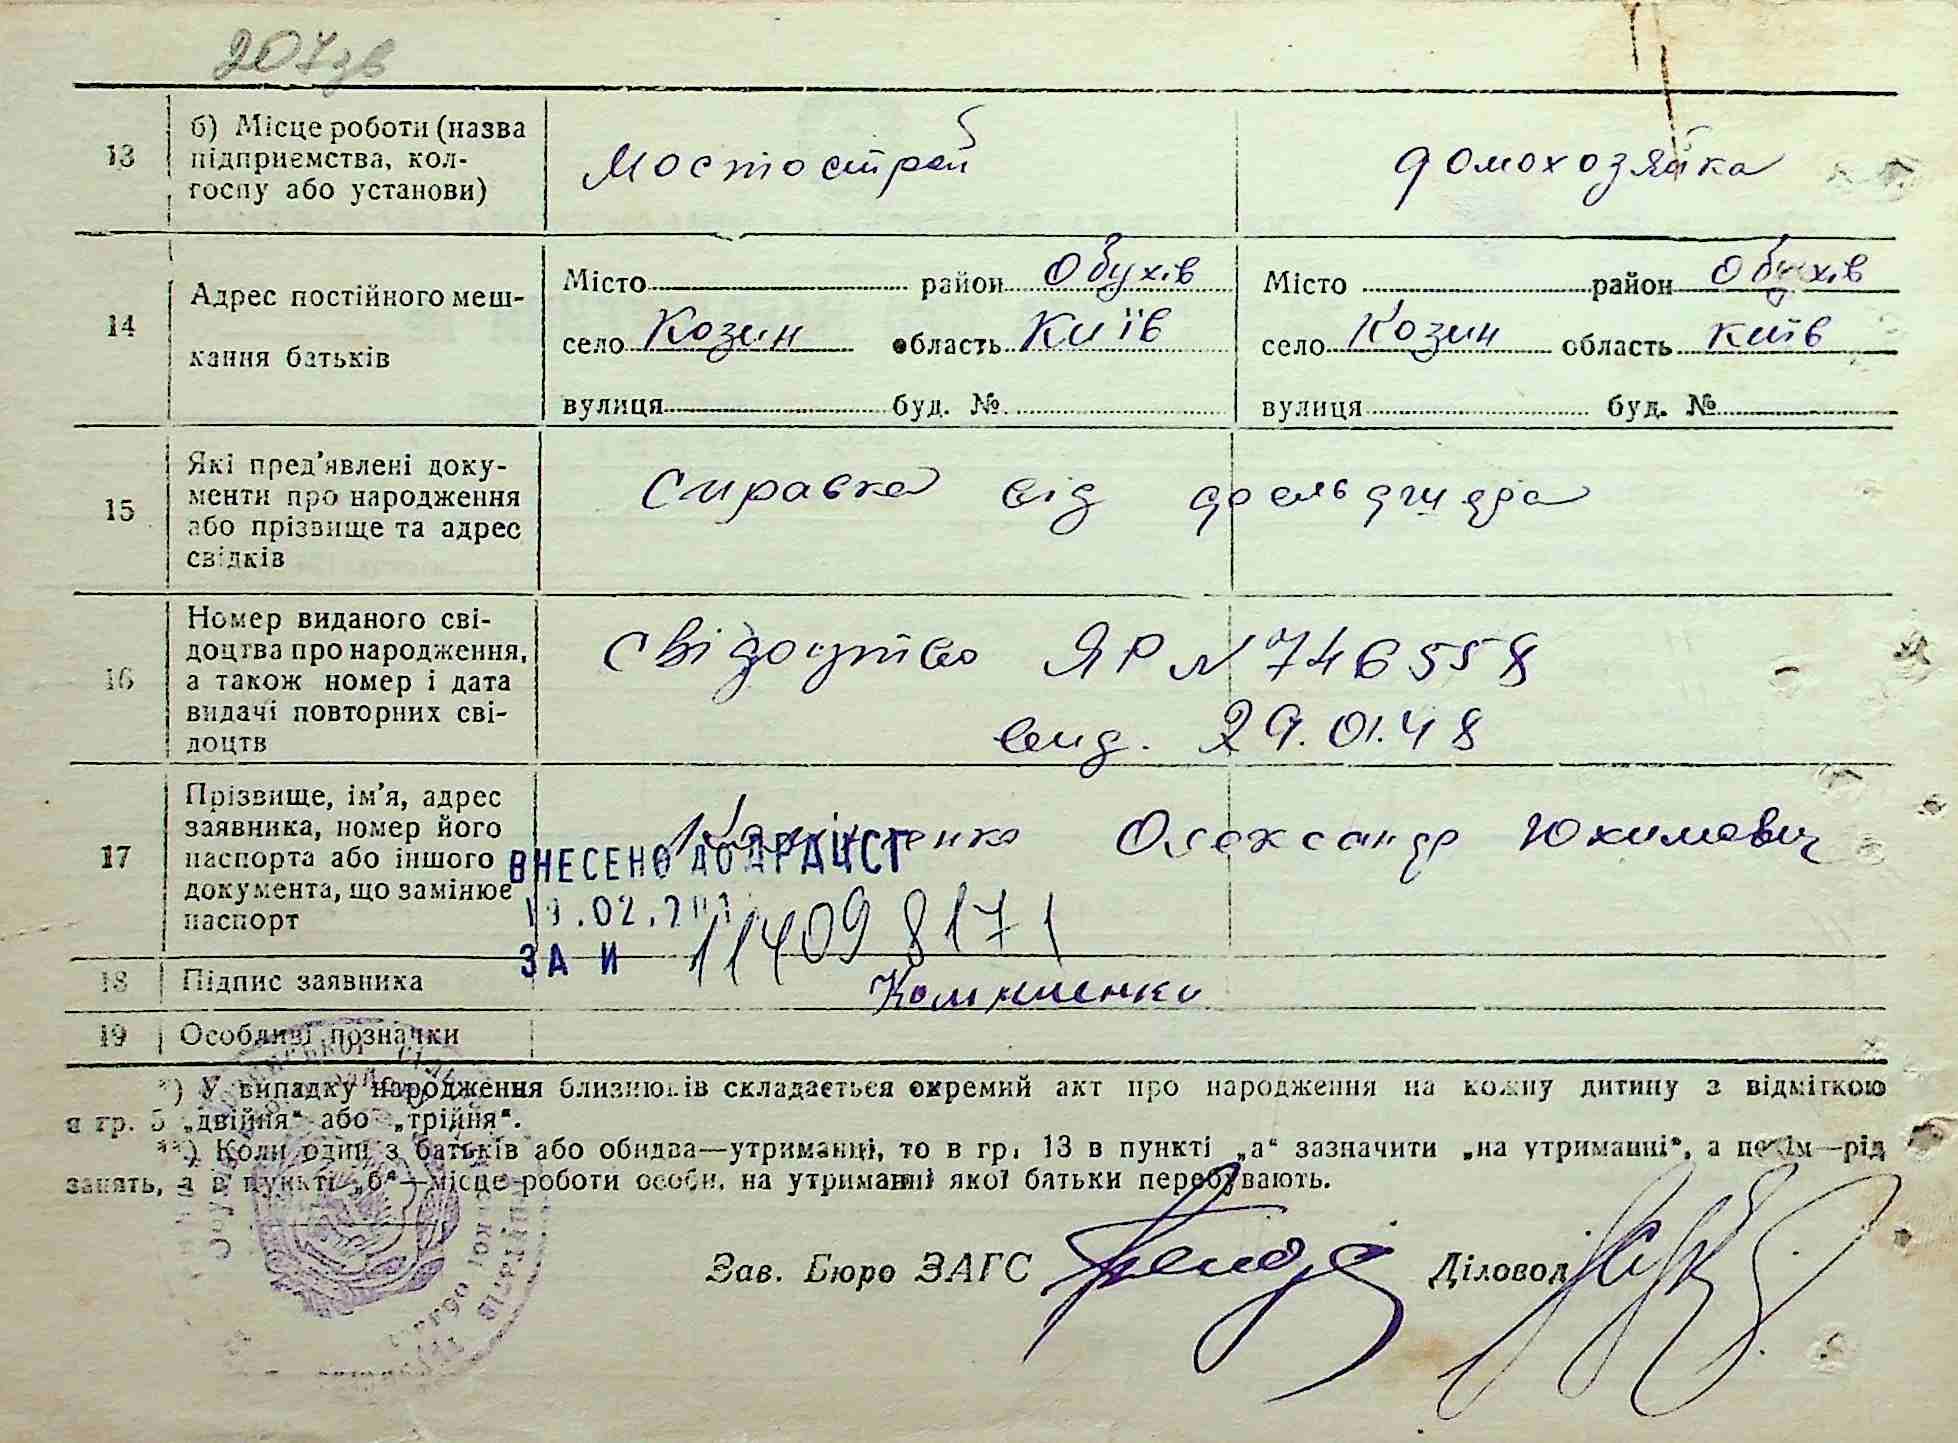 207зв
13 б) Місце роботи (назва підприємства, колгоспу або установи) Мостострой домохозяйка
14 Адрес постійного мешкання батьків
Місто район Обухів Місто район Обухів
село Козин область Київ село Козин область Київ
вулиця буд. № вулиця буд. №
15 Які пред'явлені документи про народження або прізвище та адрес свідків Справка від
16 Номер виданого свідоцтва про народження, а також номер і дата видачі повторних свідоцтв Свідоцтво ЯР N 746558
вид. 29.01.48
17 Прізвище, ім'я, адрес заявника, номер його паспорта або іншого документа, що замінює паспорт Олександр Юхимович
ВНЕСЕНО ДО ДРАЦСГ
.02.
ЗА И 11409817
18 Підпис заявника
19 Особливі позначки
*) У випадку народження близнюків складається окремий акт про народження на кожну дитину з відміткою
в гр. 5 „двійня“ або „трійня“.
**) Коли один з батьків або обидва—утриманці, то в гр. 13 в пункті „а“ зазначити „на утриманні“, а потім—рід
занять, а в пункті „б“—місце роботи особи, на утриманні якої батьки перебувають.
Зав. Бюро ЗАГС Діловод